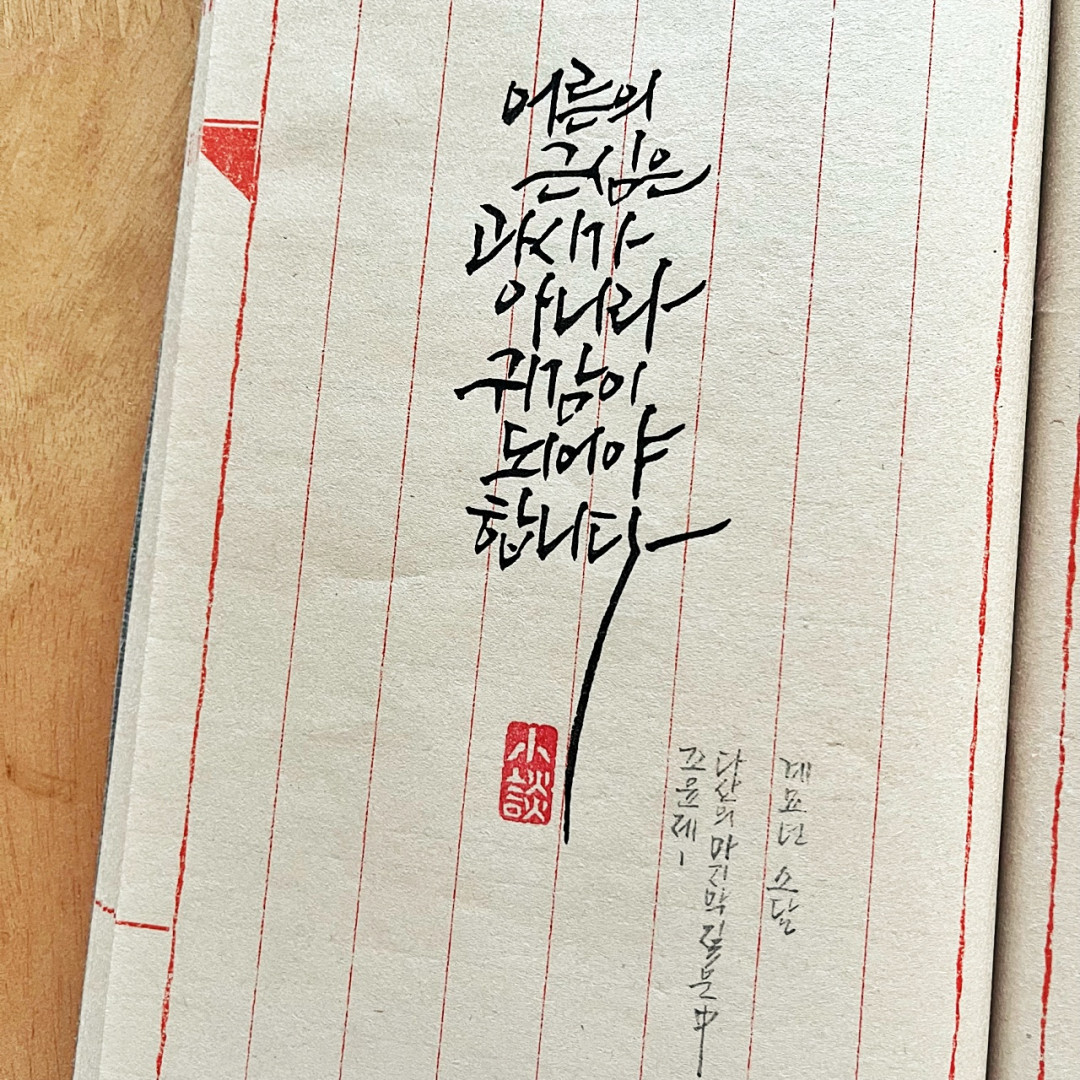 어른의
근심은
과시가
아니라
귀감이
되어야
합니다
小談
계묘년 소담
다산의 마지막 질문 中
조윤제-